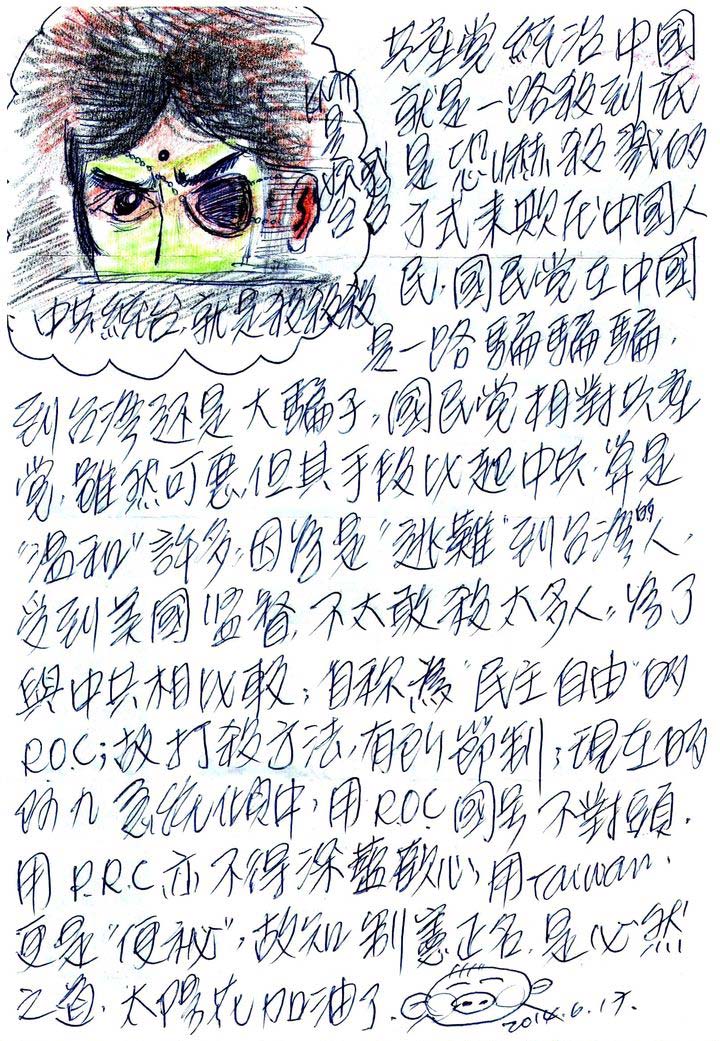 共產党統治中國
就是一路殺到底
是恐嚇殺戮的
方式來欺在中國人
民.國民党在中國
是一路騙騙騙,
中共統台.就是殺殺殺
到台灣还是大騙子,國民党相對共產
党,雖然可惡,但其手段比起中共.算是
"溫和"許多,因為是"逃難"到台灣的人,
受到美國监督,不太敢殺太多人,為了
與中共相比較;自称為"民主自由"的
R.O.C;故打殺方法,有所節制;現在的
馬九 急統傾中,用R.O.C國号不對頭.
用P.R.C亦不得深藍歡心,用Taiwan.
更是"便秘",故知制憲正名.是必然
之道.太陽花加油了.
2014.6.17.